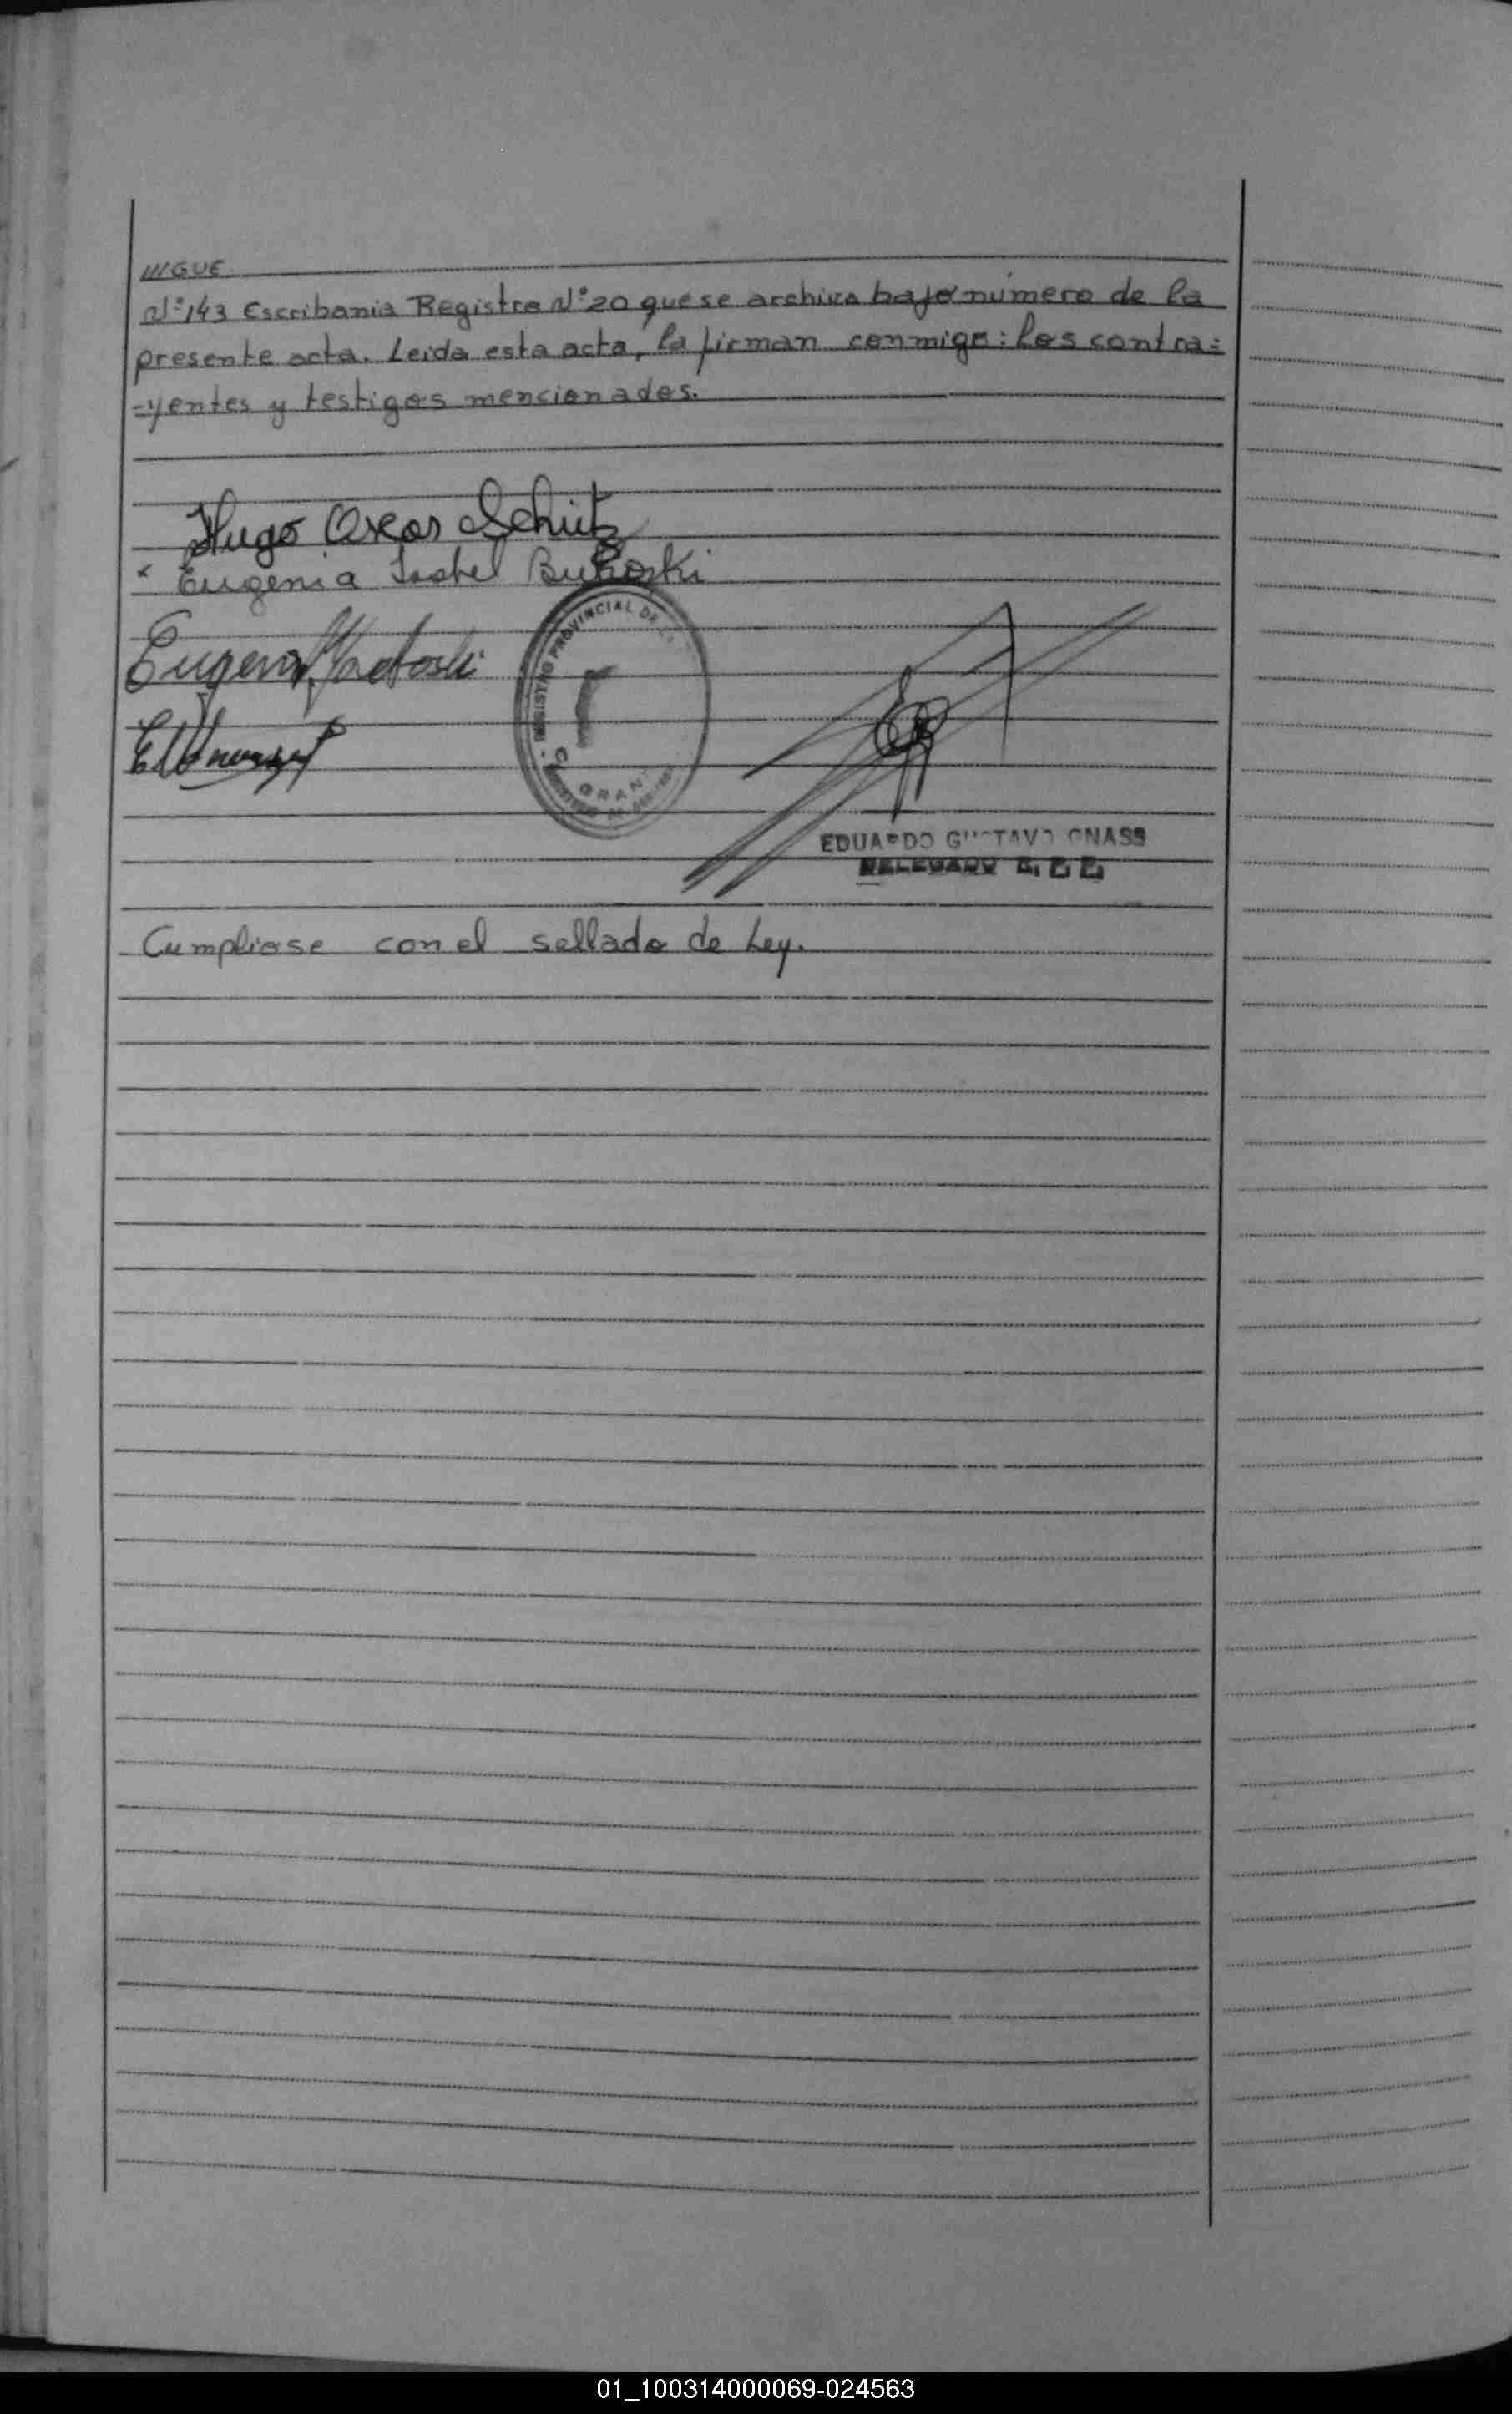 ///GUE
Nº 143 Escribania Registro Nº 20 que se archiva bajo numero de la
presente acta. Leida esta acta, la firman conmigo: los contra=
=yentes y testigos mencionados.
Hugo Oscar Schutz
x Eugenia Isabel Bukoski
Eugenio
REGISTRO PROVINCIAL DE
EDUARDO GUSTAVO GNASS
DELEGADO
Cumpliose con el sellado de Ley.
01_100314000069-024563